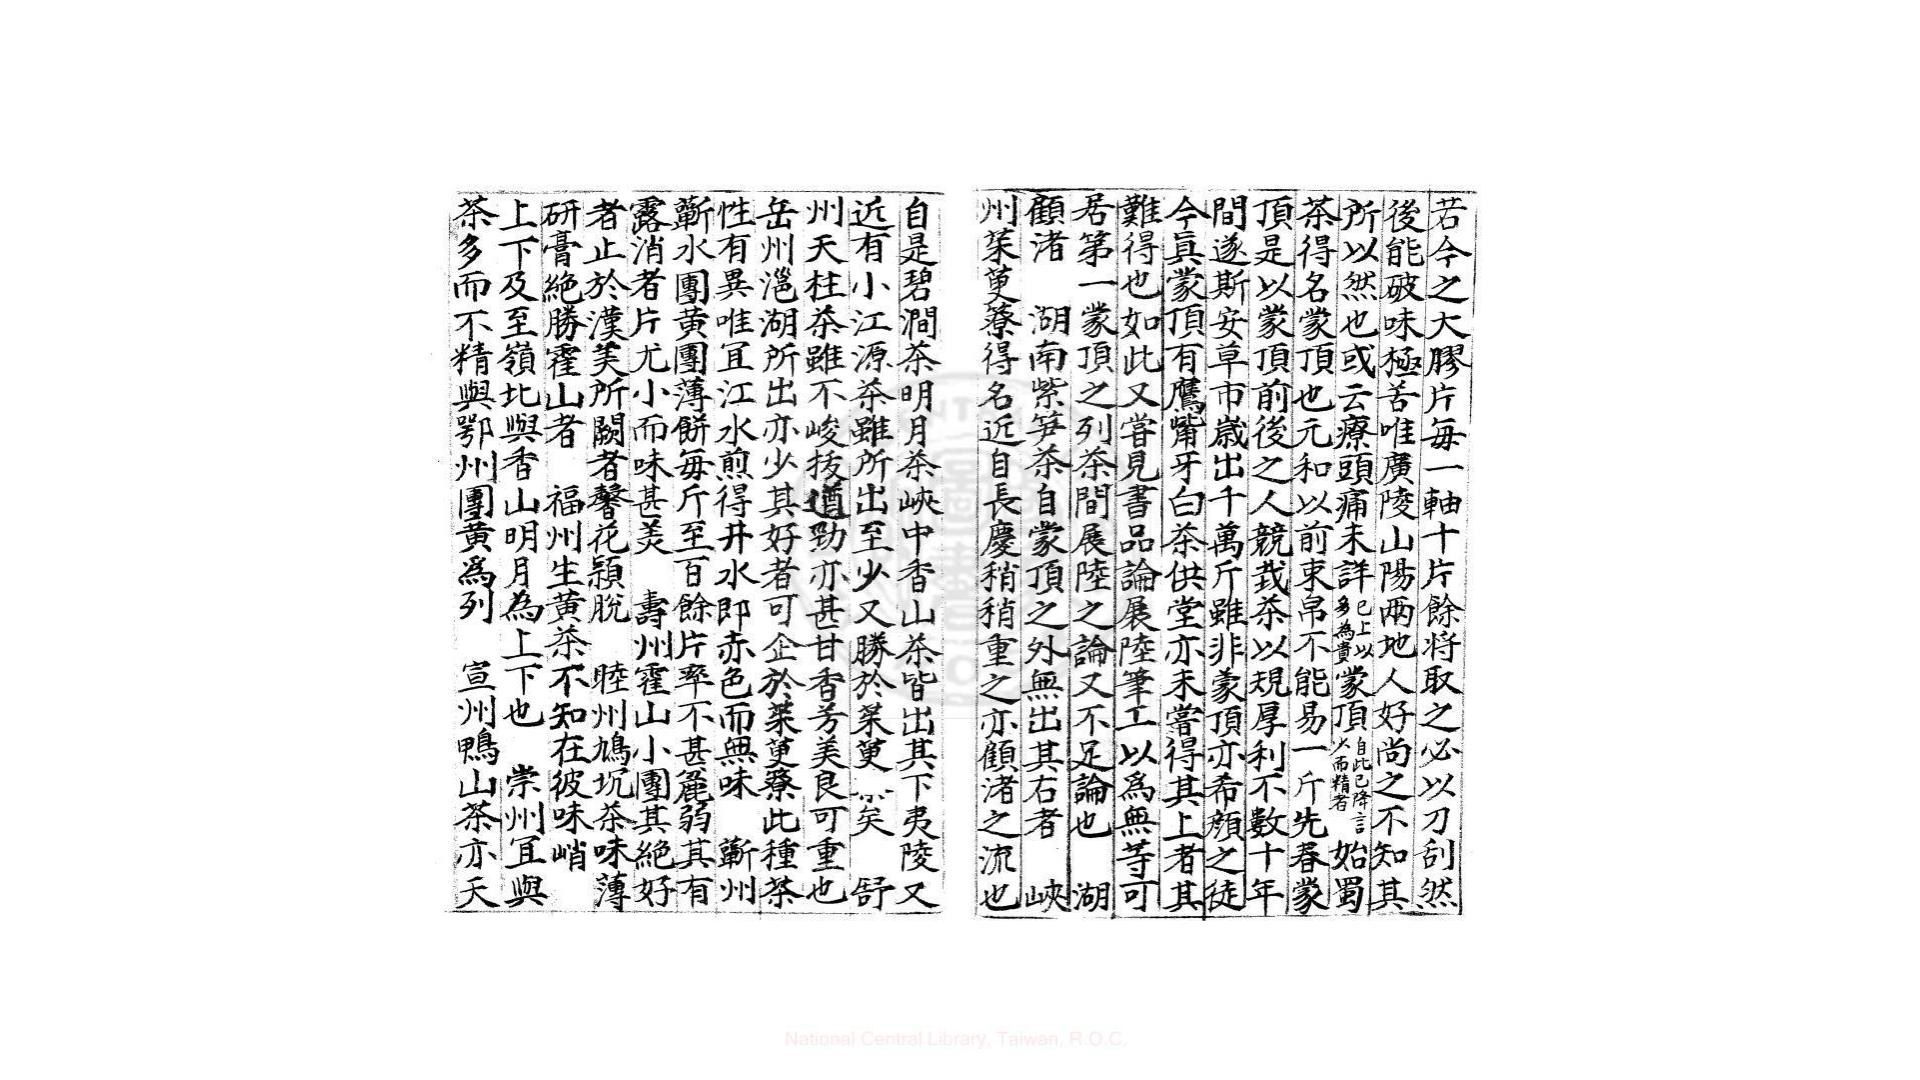 若今之大膠片每一軸十片餘将取之必以刀刮然
後能破味極苦唯廣陵山陽兩地人好尚之不知其
所以然也或云療頭痛未詳已上以多為貴蒙頂自此已降言少而精者 始蜀
茶得名蒙頂也元和以前束帛不能易一斤先春蒙
頂是以蒙頂前後之人競栽茶以規厚利不數十年
間遂斯安草市歳出千萬斤雖非蒙頂亦希顔之徒
今真蒙頂有鷹觜牙白茶供堂亦未嘗得其上者其
難得也如此又嘗見書品論展陸筆工以爲無等可
居第一蒙頂之列茶間展陸之論又不足論也 湖
顧渚 湖南紫笋茶自蒙頂之外無出其右者 峽
州茱萸藔得名近自長慶稍稍重之亦顧渚之流也
自是碧澗茶明月茶峽中香山茶皆出其下夷陵又
近有小江源茶雖所出至少又勝於茱萸 矣 舒
州天柱茶雖不峻拔遒勁亦甚甘香芳美良可重也
岳州㴩湖所出亦少其好者可企於茱萸藔此種茶
性有異唯冝江水煎得井水即赤色而無味 蘄州
蘄水團黄團薄餅每斤至百餘片率不甚麄弱其有
露消者片尤小而味甚美 壽州霍山小團其絶好
者止於漢美所闕者馨花頴脫 睦州鳩坑茶味薄
研膏絶勝霍山者 福州生黄茶不知在彼味峭
上下及至嶺北與香山明月為上下也 崇州冝與
茶多而不精與鄂州團黄爲列 宣州鴨山茶亦天
National Central Library, Taiwan, R.O.C.